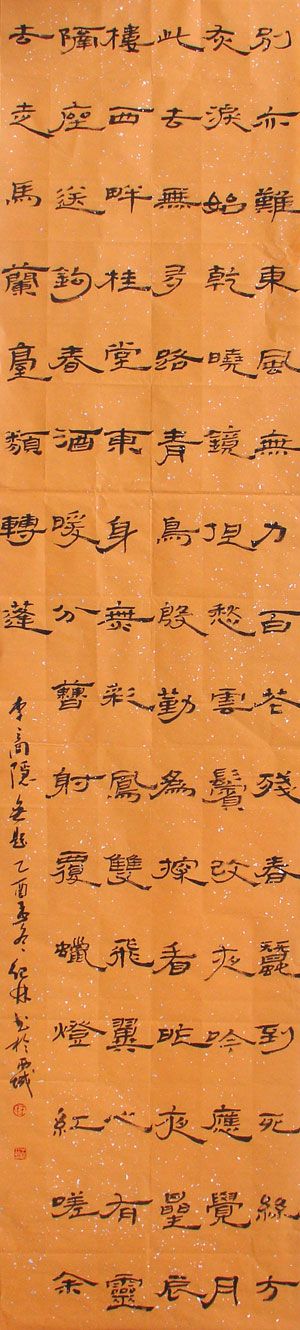 別亦難東風無力百花殘春蠶到死絲方
灰淚始乾曉鏡但愁雲鬢改夜吟應覺月
此去無多路青鳥殷勤為探看昨夜星辰
樓西畔桂堂東身無彩鳳雙飛翼心有靈
隔座送鉤春酒暖分曹射覆蠟燈紅嗟余
去走馬蘭臺類轉蓬
李商隱無題乙酉孟冬紀林書於